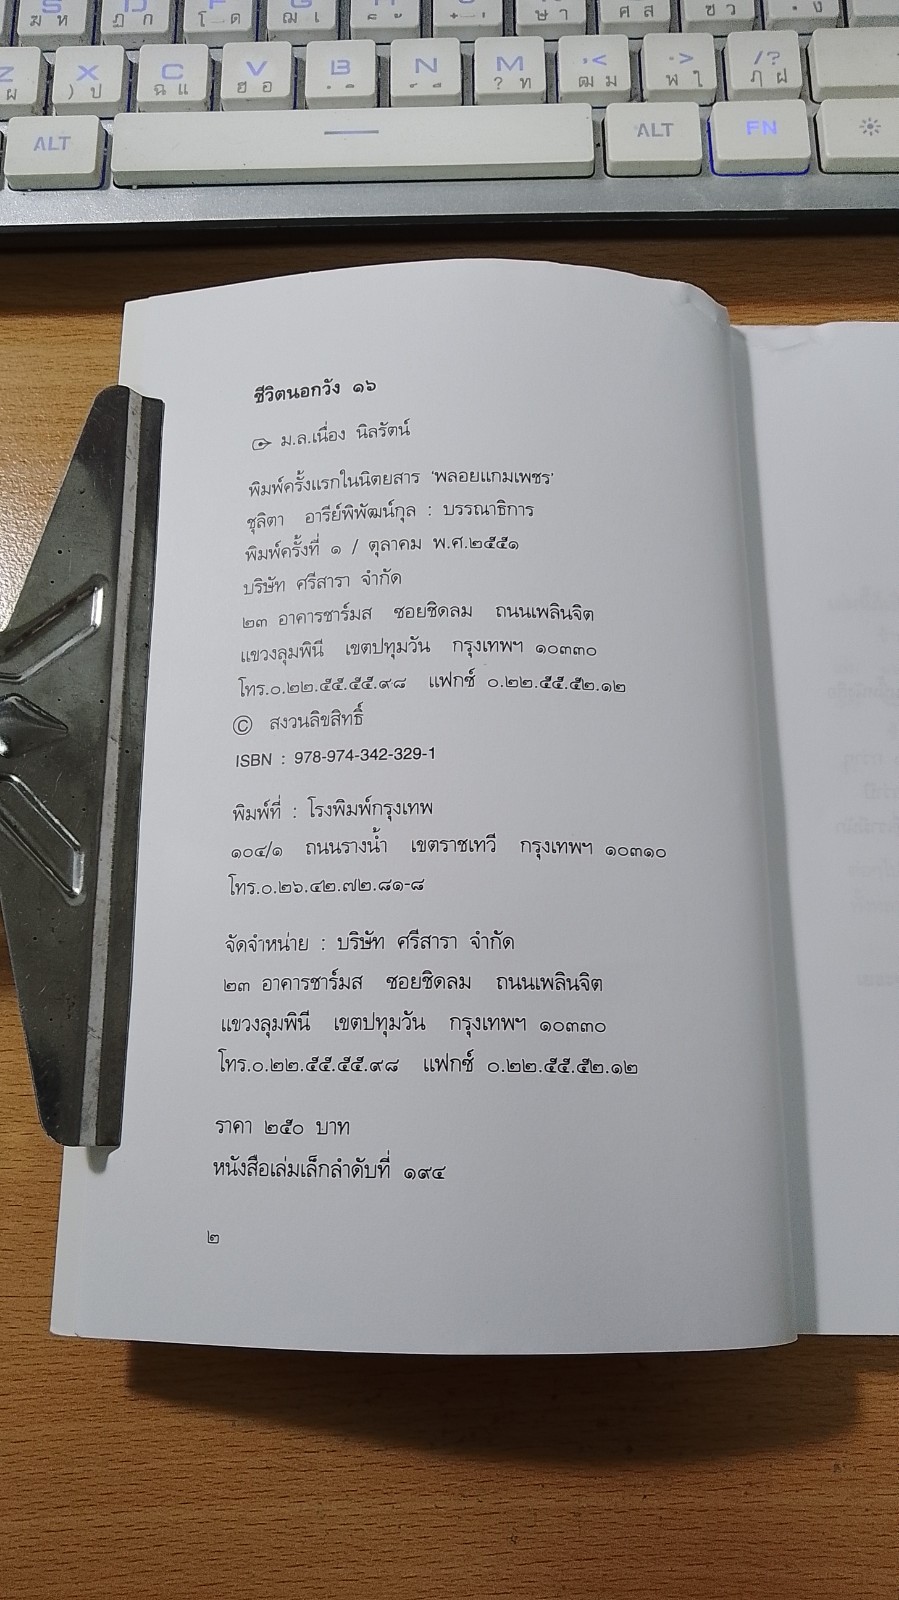 S ฆ ห
ฏ ก
F โ ด
ฌ เ
ษ า
ศ ส
ซ ว
. ง
Z ผ
X ) ป
C ฉ แ
V ฮ อ
B
N
M ? ท
, < ฒ ม
. > ฬ ใ
/ ? ฦ ฝ
ALT
ALT
FN
ชีวิตนอกวัง ๑๖
ม.ล.เนื่อง นิลรัตน์
พิมพ์ครั้งแรกในนิตยสาร 'พลอยแกมเพชร'
ชุลิตา อารีย์พิพัฒน์กุล : บรรณาธิการ
พิมพ์ครั้งที่ ๑ / ตุลาคม พ.ศ.๒๕๕๑
บริษัท ศรีสารา จำกัด
๒๓ อาคารชาร์มส ซอยชิดลม ถนนเพลินจิต
แขวงลุมพินี เขตปทุมวัน กรุงเทพฯ ๑๐๓๓๐
โทร.๐.๒๒.๕๕.๕๕.๙๘ แฟกซ์ ๐.๒๒.๕๕.๕๒.๑๒
© สงวนลิขสิทธิ์
ISBN : 978-974-342-329-1
พิมพ์ที่ : โรงพิมพ์กรุงเทพ
๑๐๔/๑ ถนนรางน้ำ เขตราชเทวี กรุงเทพฯ ๑๐๓๑๐
โทร.๐.๒๖.๔๒.๗๒.๘๑-๘
จัดจำหน่าย : บริษัท ศรีสารา จำกัด
๒๓ อาคารชาร์มส ซอยชิดลม ถนนเพลินจิต
แขวงลุมพินี เขตปทุมวัน กรุงเทพฯ ๑๐๓๓๐
โทร.๐.๒๒.๕๕.๕๕.๙๘ แฟกซ์ ๐.๒๒.๕๕.๕๒.๑๒
ราคา ๒๕๐ บาท
หนังสือเล่มเล็กลำดับที่ ๑๙๔
๒